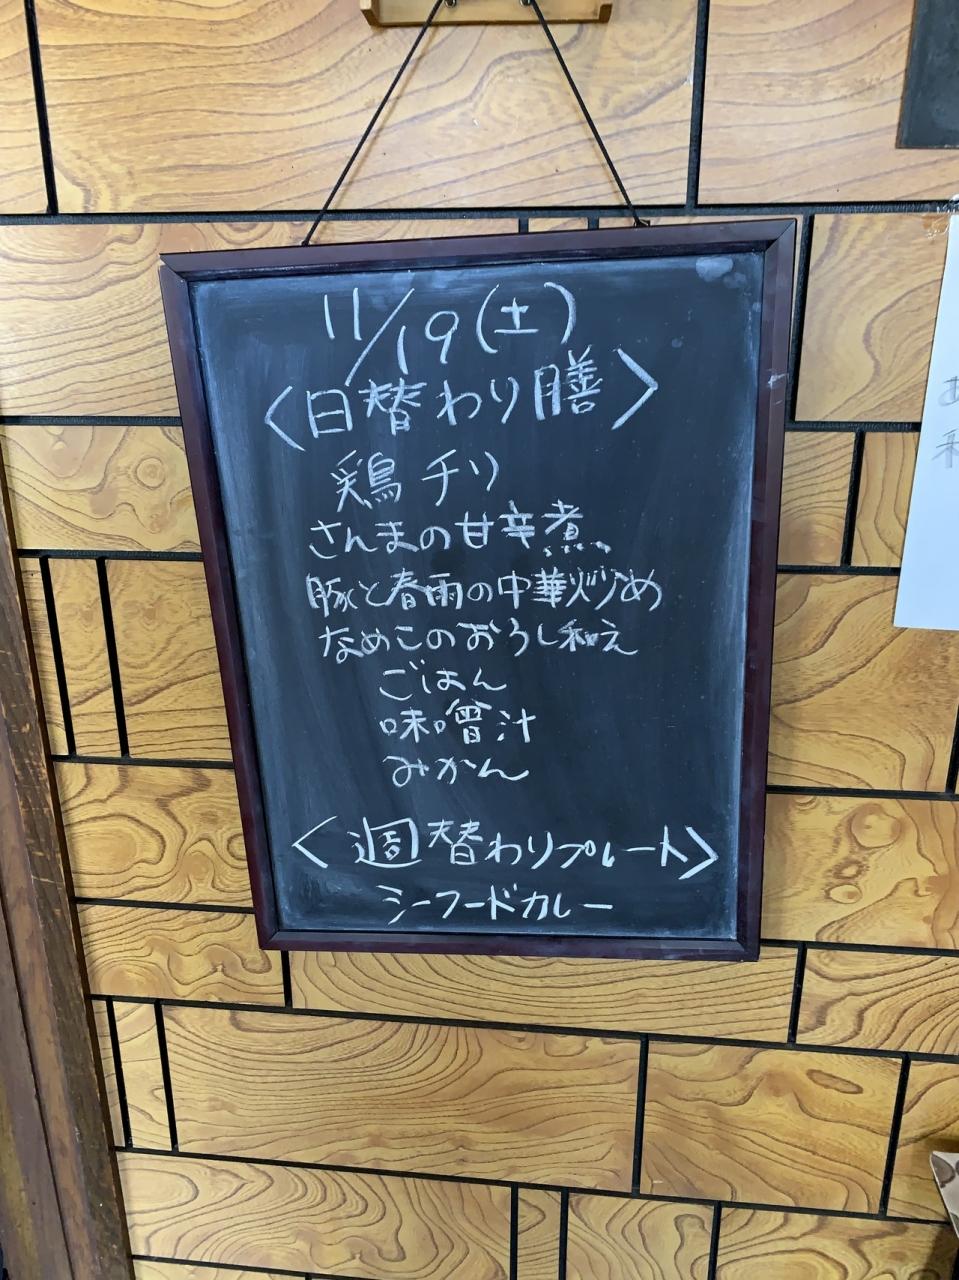 11/19(土)
〈日替わり膳〉
鶏チリ
さんまの甘辛煮
豚と春雨の中華炒め
なめこのおろし和え
ごはん
味噌汁
みかん
〈週替わりプレート〉
シーフードカレー